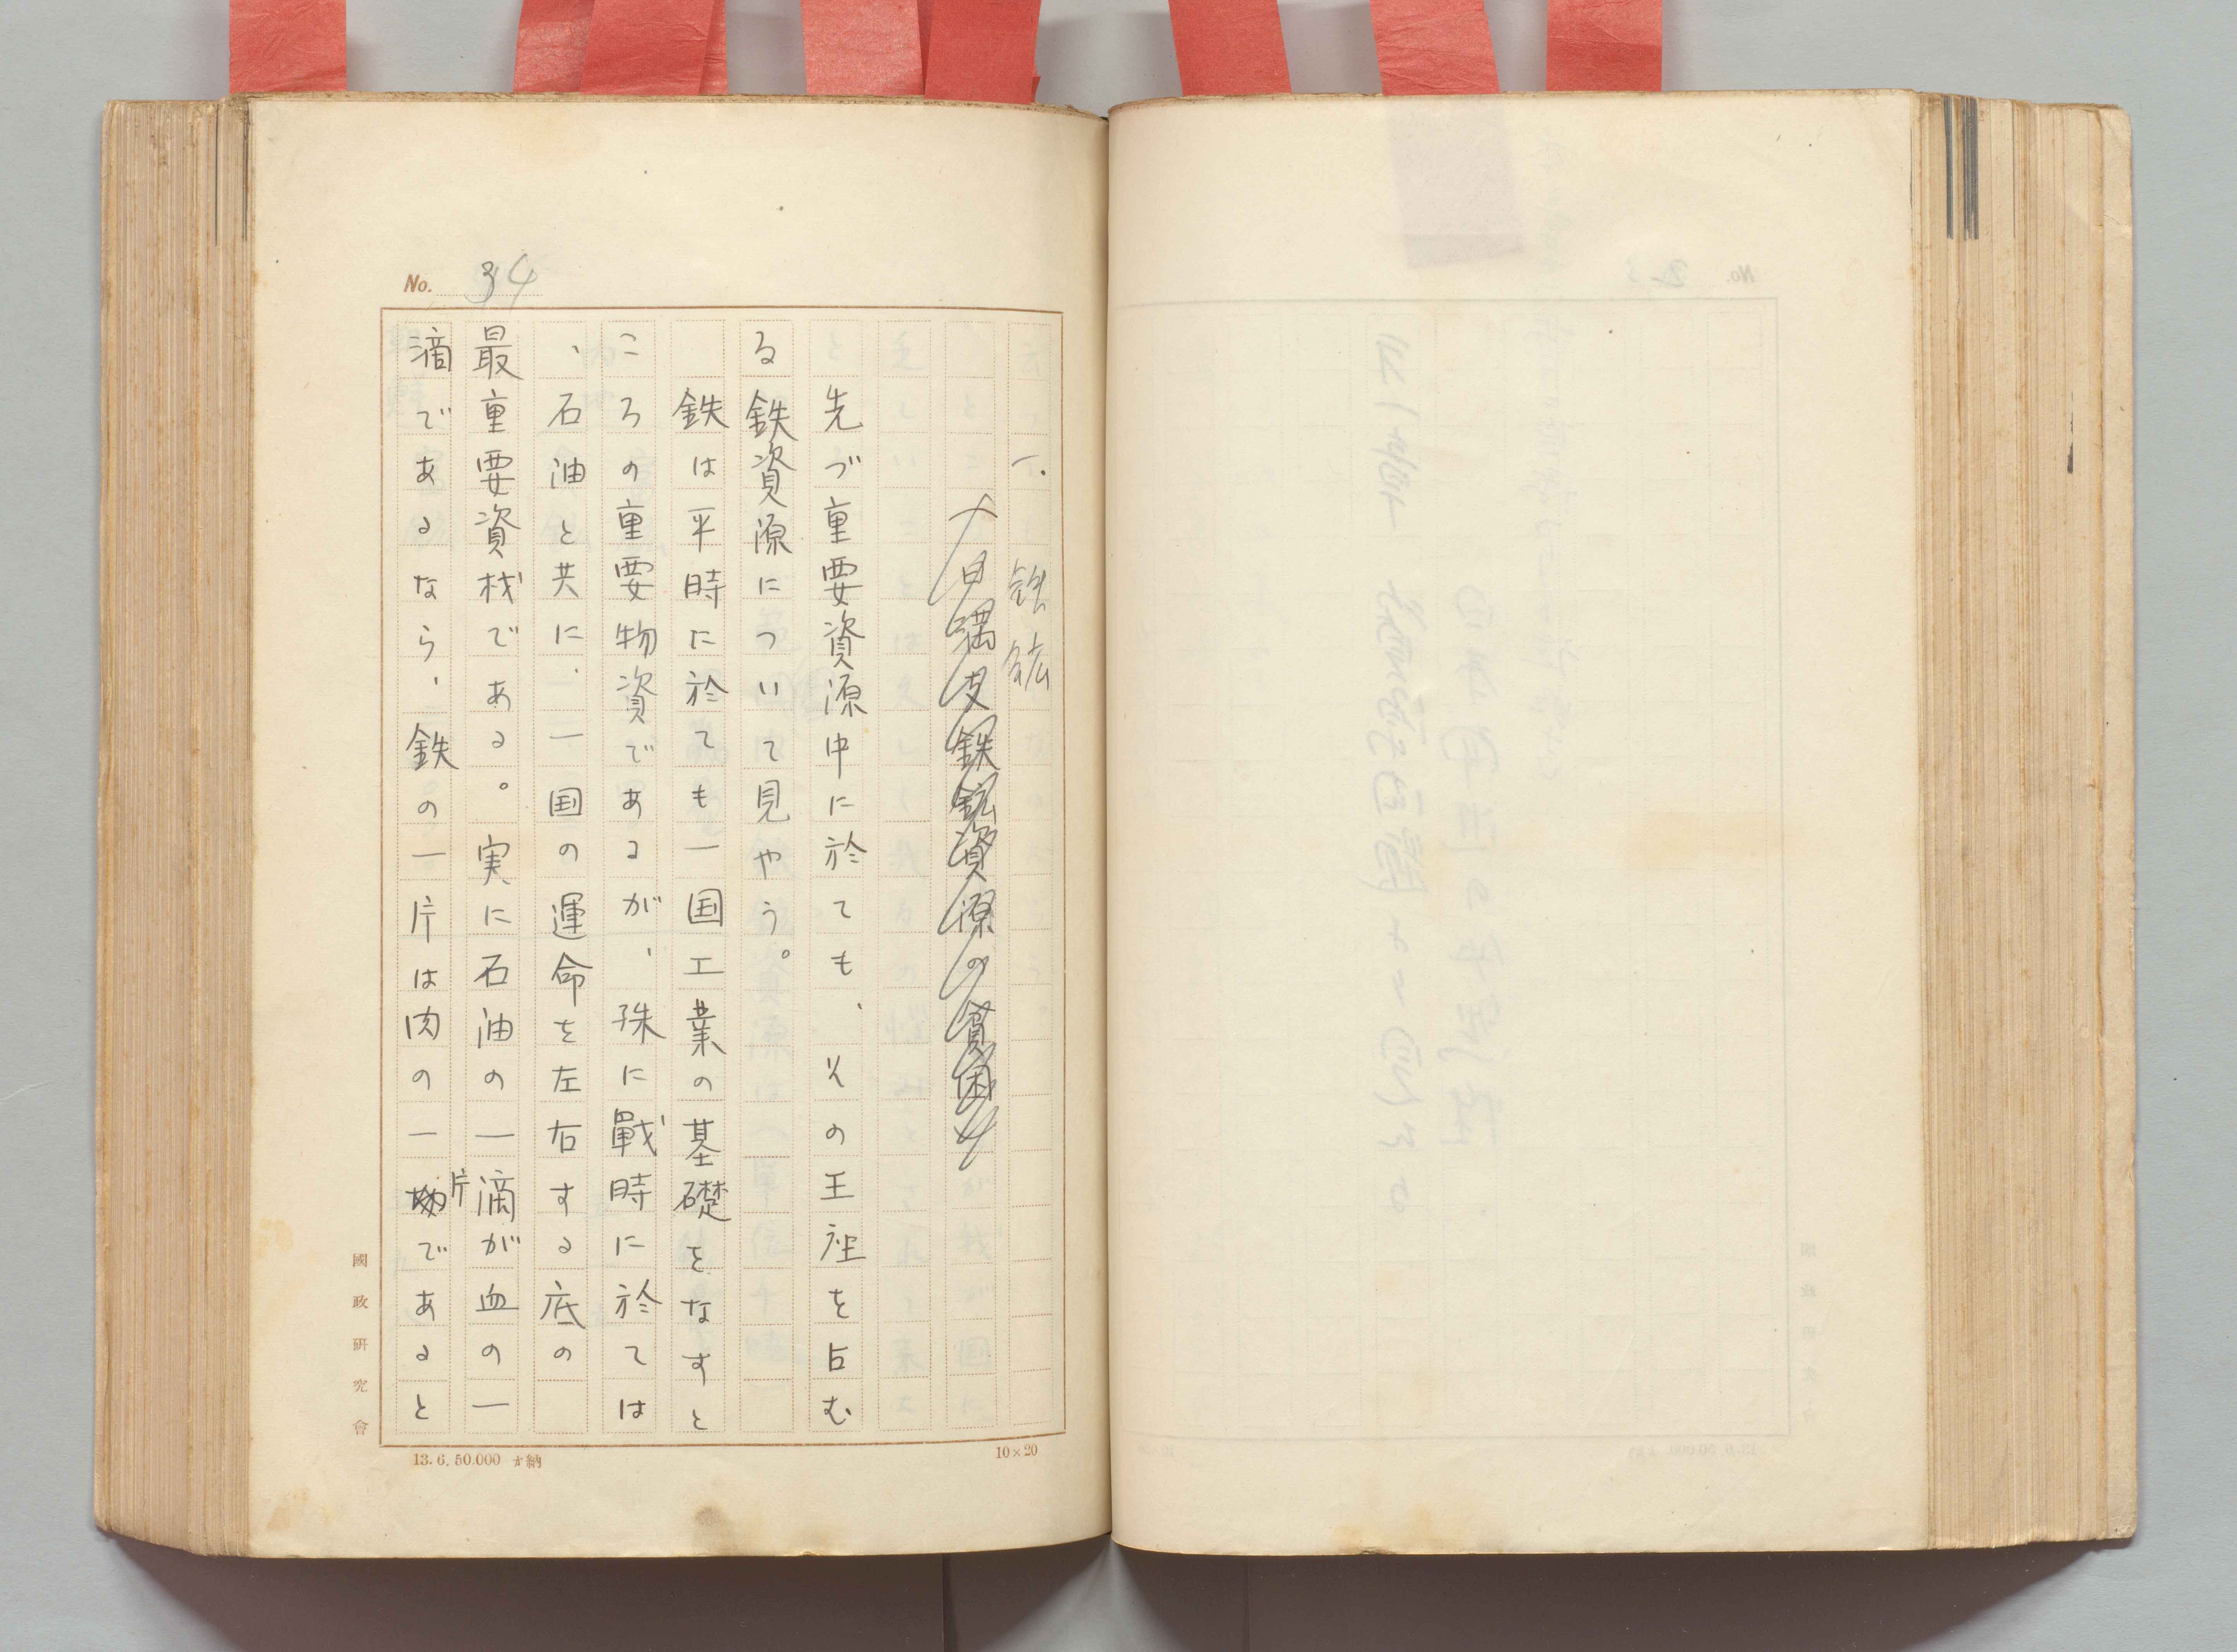 No. 34
一. 鉄鉱
日満支鉄鉱資源の貧困
先づ重要資源中に於ても、その王座を占む
る鉄資源について見やう。
鉄は平時に於ても一国工業の基礎をなすと
ころの重要物資であるが、殊に戰時に於ては
、石油と共に、一国の運命を左右する底の
最重要資材である。実に石油の一滴が血の一
滴であるなら、鉄の一片は肉の一片であると
國政研究會
13.6.50.000 納
10×20